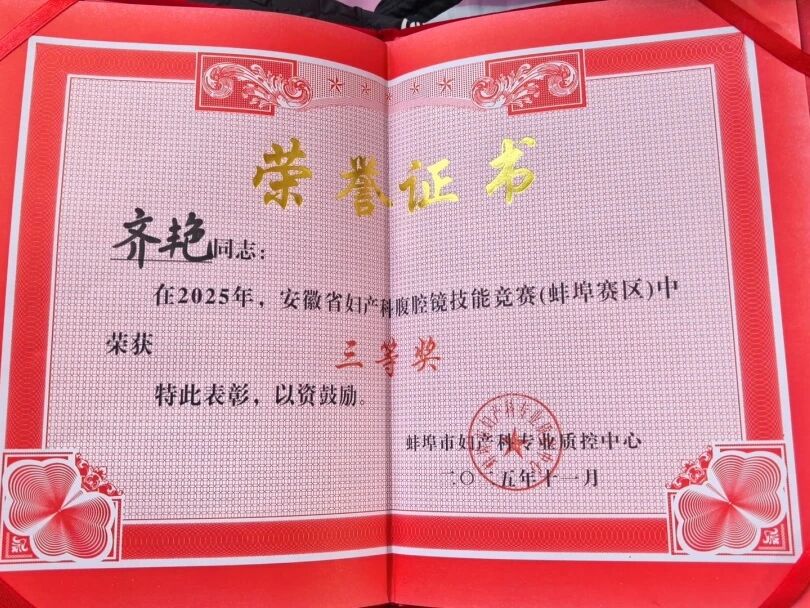 荣誉证书
齐艳同志：
在2025年，安徽省妇产科腹腔镜技能竞赛(蚌埠赛区)中
荣获
三等奖
特此表彰，以资鼓励。
蚌埠市妇产科专业质控中心
二〇二五年十一月